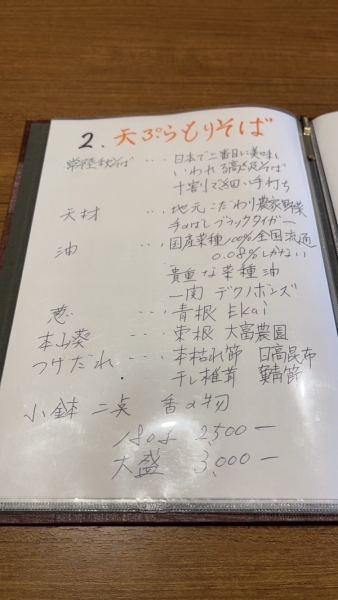 2. 天ぷらもりそば
常陸秋そば ・・・ 日本で二番目に美味い
いわれる高遠そば
十割り細い手打ち
天材 ・・・ 地元こだわり農家野菜
手のばしブラックタイガー
油 ・・・ 国産菜種100%全国流通
0.08%しかない
貴重な菜種油
一関 デクノボンズ
青根 Ekai
本山葵 ・・・ 東根 大富農園
つけだれ ・・・ 本枯れ節 日高昆布
干し椎茸
小鉢 二点 香の物
2,500ー
大盛 3,000ー